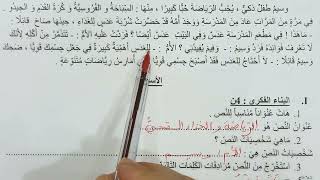 وَسِيمٌ طِفْلٌ ذَكِيٌّ ، يُحِبُّ الرِّيَاضَةَ حُبًّا كَبِيرًا ، مِنْهَا : السِّبَاحَةُ وَ الْفُرُوسِيَّةُ وَ كُرَةُ الْقَدَمِ وَ الْجِيدُو .
فِي مَرَّةٍ مِنَ الْمَرَّاتِ عَادَ مِنَ الْمَدْرَسَةِ وَجَدَ أُمَّهُ قَدْ حَضَّرَتْ شُرْبَةَ عَدَسٍ لِلْغَدَاءِ ، حِينَهَا صَاحَ قَائِلًا :
- مَا هَذَا ! فِي مَطْعَمِ الْمَدْرَسَةِ عَدَسٌ وَفِي الْبَيْتِ عَدَسٌ أَيْضًا ؟ فَرَدَّتْ عَلَيْهِ الْأُمُّ : - تَتَذَمَّرُ مِنْ أَكْلِهِ لِأَنَّكَ
لَا تَعْرِفُ فَوَائِدَهُ فَرَدَّ وَسِيمٌ - وَ فِيمَ يُفِيدُنِي ؟ الأُمُّ : - لِلْعَدَسِ أَهَمِّيَّةٌ كَبِيرَةٌ فِي جَعْلِ جِسْمِكَ قَوِيًّا ، ضَحِكَ
وَسِيمٌ قَائِلًا : - لَا أَحْتَاجُ لِلْعَدَسِ فَقَدْ أَصْبَحَ جِسْمِي قَوِيًّا أُمَارِسُ رِيَاضَاتٍ مُتَنَوِّعَةً .
الأسئلة
I. البناء الفكري : 4ن
1. هَاتِ عُنْوَانًا مُنَاسِبًا لِلنَّصِّ
عُنْوَانُ النَّصِّ هُوَ
2. مَا هِيَ شَخْصِيَّاتُ النَّصِّ ؟
شَخْصِيَّاتُ النَّصِّ هِيَ :
3. اسْتَخْرِجْ مِنَ النَّصِّ مُرَادِفَاتِ الْكَلِمَاتِ التَّالِيَةِ